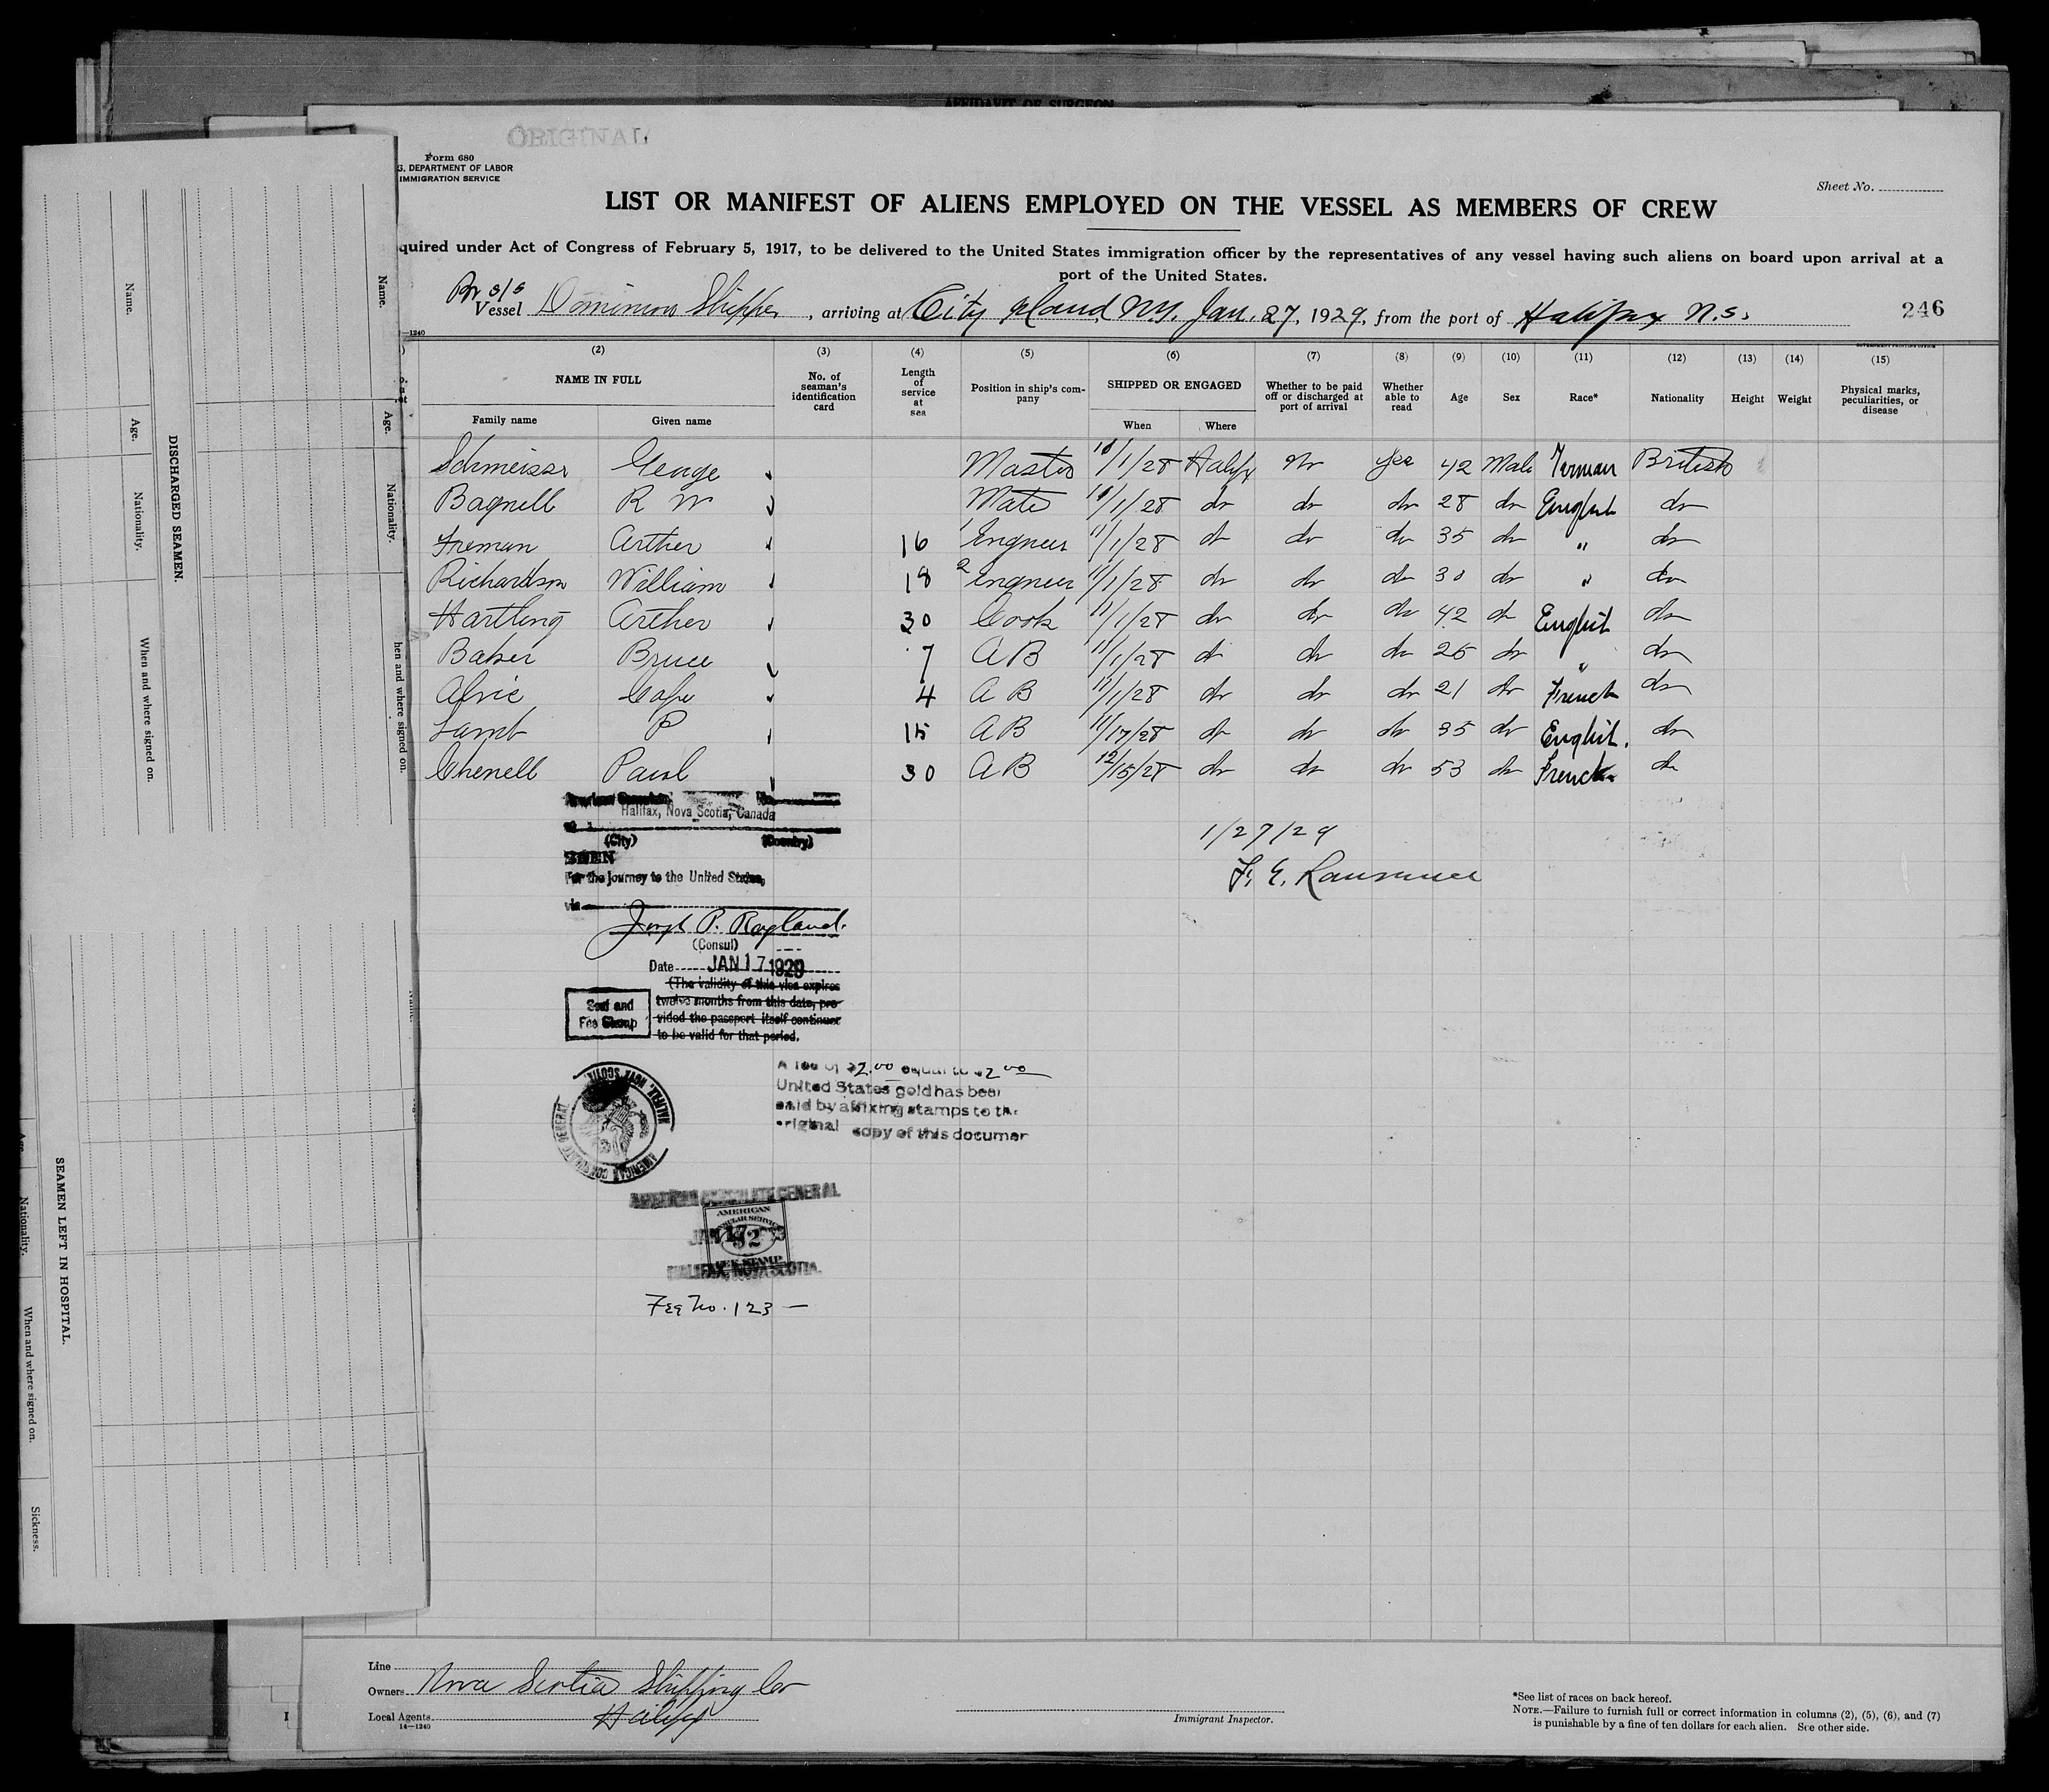 AFFIDAVIT OF SURGEON
ORIGINAL
Form 680
S. DEPARTMENT OF LABOR
IMMIGRATION SERVICE
Sheet No.
LIST OR MANIFEST OF ALIENS EMPLOYED ON THE VESSEL AS MEMBERS OF CREW
quired under Act of Congress of February 5, 1917, to be delivered to the United States immigration officer by the representatives of any vessel having such aliens on board upon arrival at a
port of the United States.
Br s/s
Vessel Dominion Shipper, arriving at City Island N.Y. Jan. 27, 1929, from the port of Halifax N.S.
246
14—1240
(2) (3) (4) (5) (6) (7) (8) (9) (10) (11) (12) (13) (14) (15)
NAME IN FULL
Family name
Given name
No. of seaman's identification card
Length of service at sea
Position in ship's company
SHIPPED OR ENGAGED
When
Where
Whether to be paid off or discharged at port of arrival
Whether able to read
Age
Sex
Race*
Nationality
Height
Weight
Physical marks, peculiarities, or disease
Schmeissr George Master 10/1/28 Halifx No yes 42 Male German British
Bagnell R W Mate 10/1/28 do do do 28 do English do
Freman Arther 16 1 Engneer 11/1/28 do do do 35 do " do
Richardson William 18 2 Engneer 11/1/28 do do do 30 do " do
Hartling Arther 30 Cook 11/1/28 do do do 42 do English do
Baker Bruce 7 A B 11/1/28 do do do 26 do " do
Alvie 4 A B 11/1/28 do do do 21 do French do
Lamb P 15 A B 11/17/28 do do do 35 do English. do
Chenell Paul 30 A B 12/15/28 do do do 53 do French do
Halifax, Nova Scotia, Canada
(City) (Country)
SEEN
For the journey to the United States,
via
Joseph P. Ragland.
(Consul)
Date JAN 17 1929
(The validity of this visa expires
twelve months from this date, pro-
vided the passport itself continues
to be valid for that period.
Seal and
Fee Stamp
1/27/29
F. E.
A fee of $2.00 equal to $2 00
United States gold has been
paid by affixing stamps to the
original copy of this document
AMERICAN CONSULATE GENERAL HALIFAX, NOVA SCOTIA.
AMERICAN CONSULATE GENERAL
AMERICAN
CONSULAR SERVICE
JAN 17
$2
FEE STAMP
HALIFAX, NOVA SCOTIA.
Fee No. 123 —
Line
Owners Nova Scotia Shipping Co
Local Agents Halifx
14—1240
Immigrant Inspector.
*See list of races on back hereof.
NOTE.—Failure to furnish full or correct information in columns (2), (5), (6), and (7)
is punishable by a fine of ten dollars for each alien. See other side.
DISCHARGED SEAMEN.
Name.
Age.
Nationality.
When and where signed on.
Name.
Age.
Nationality.
hen and where signed on.
SEAMEN LEFT IN HOSPITAL.
Nationality.
When and where signed on.
Sickness.